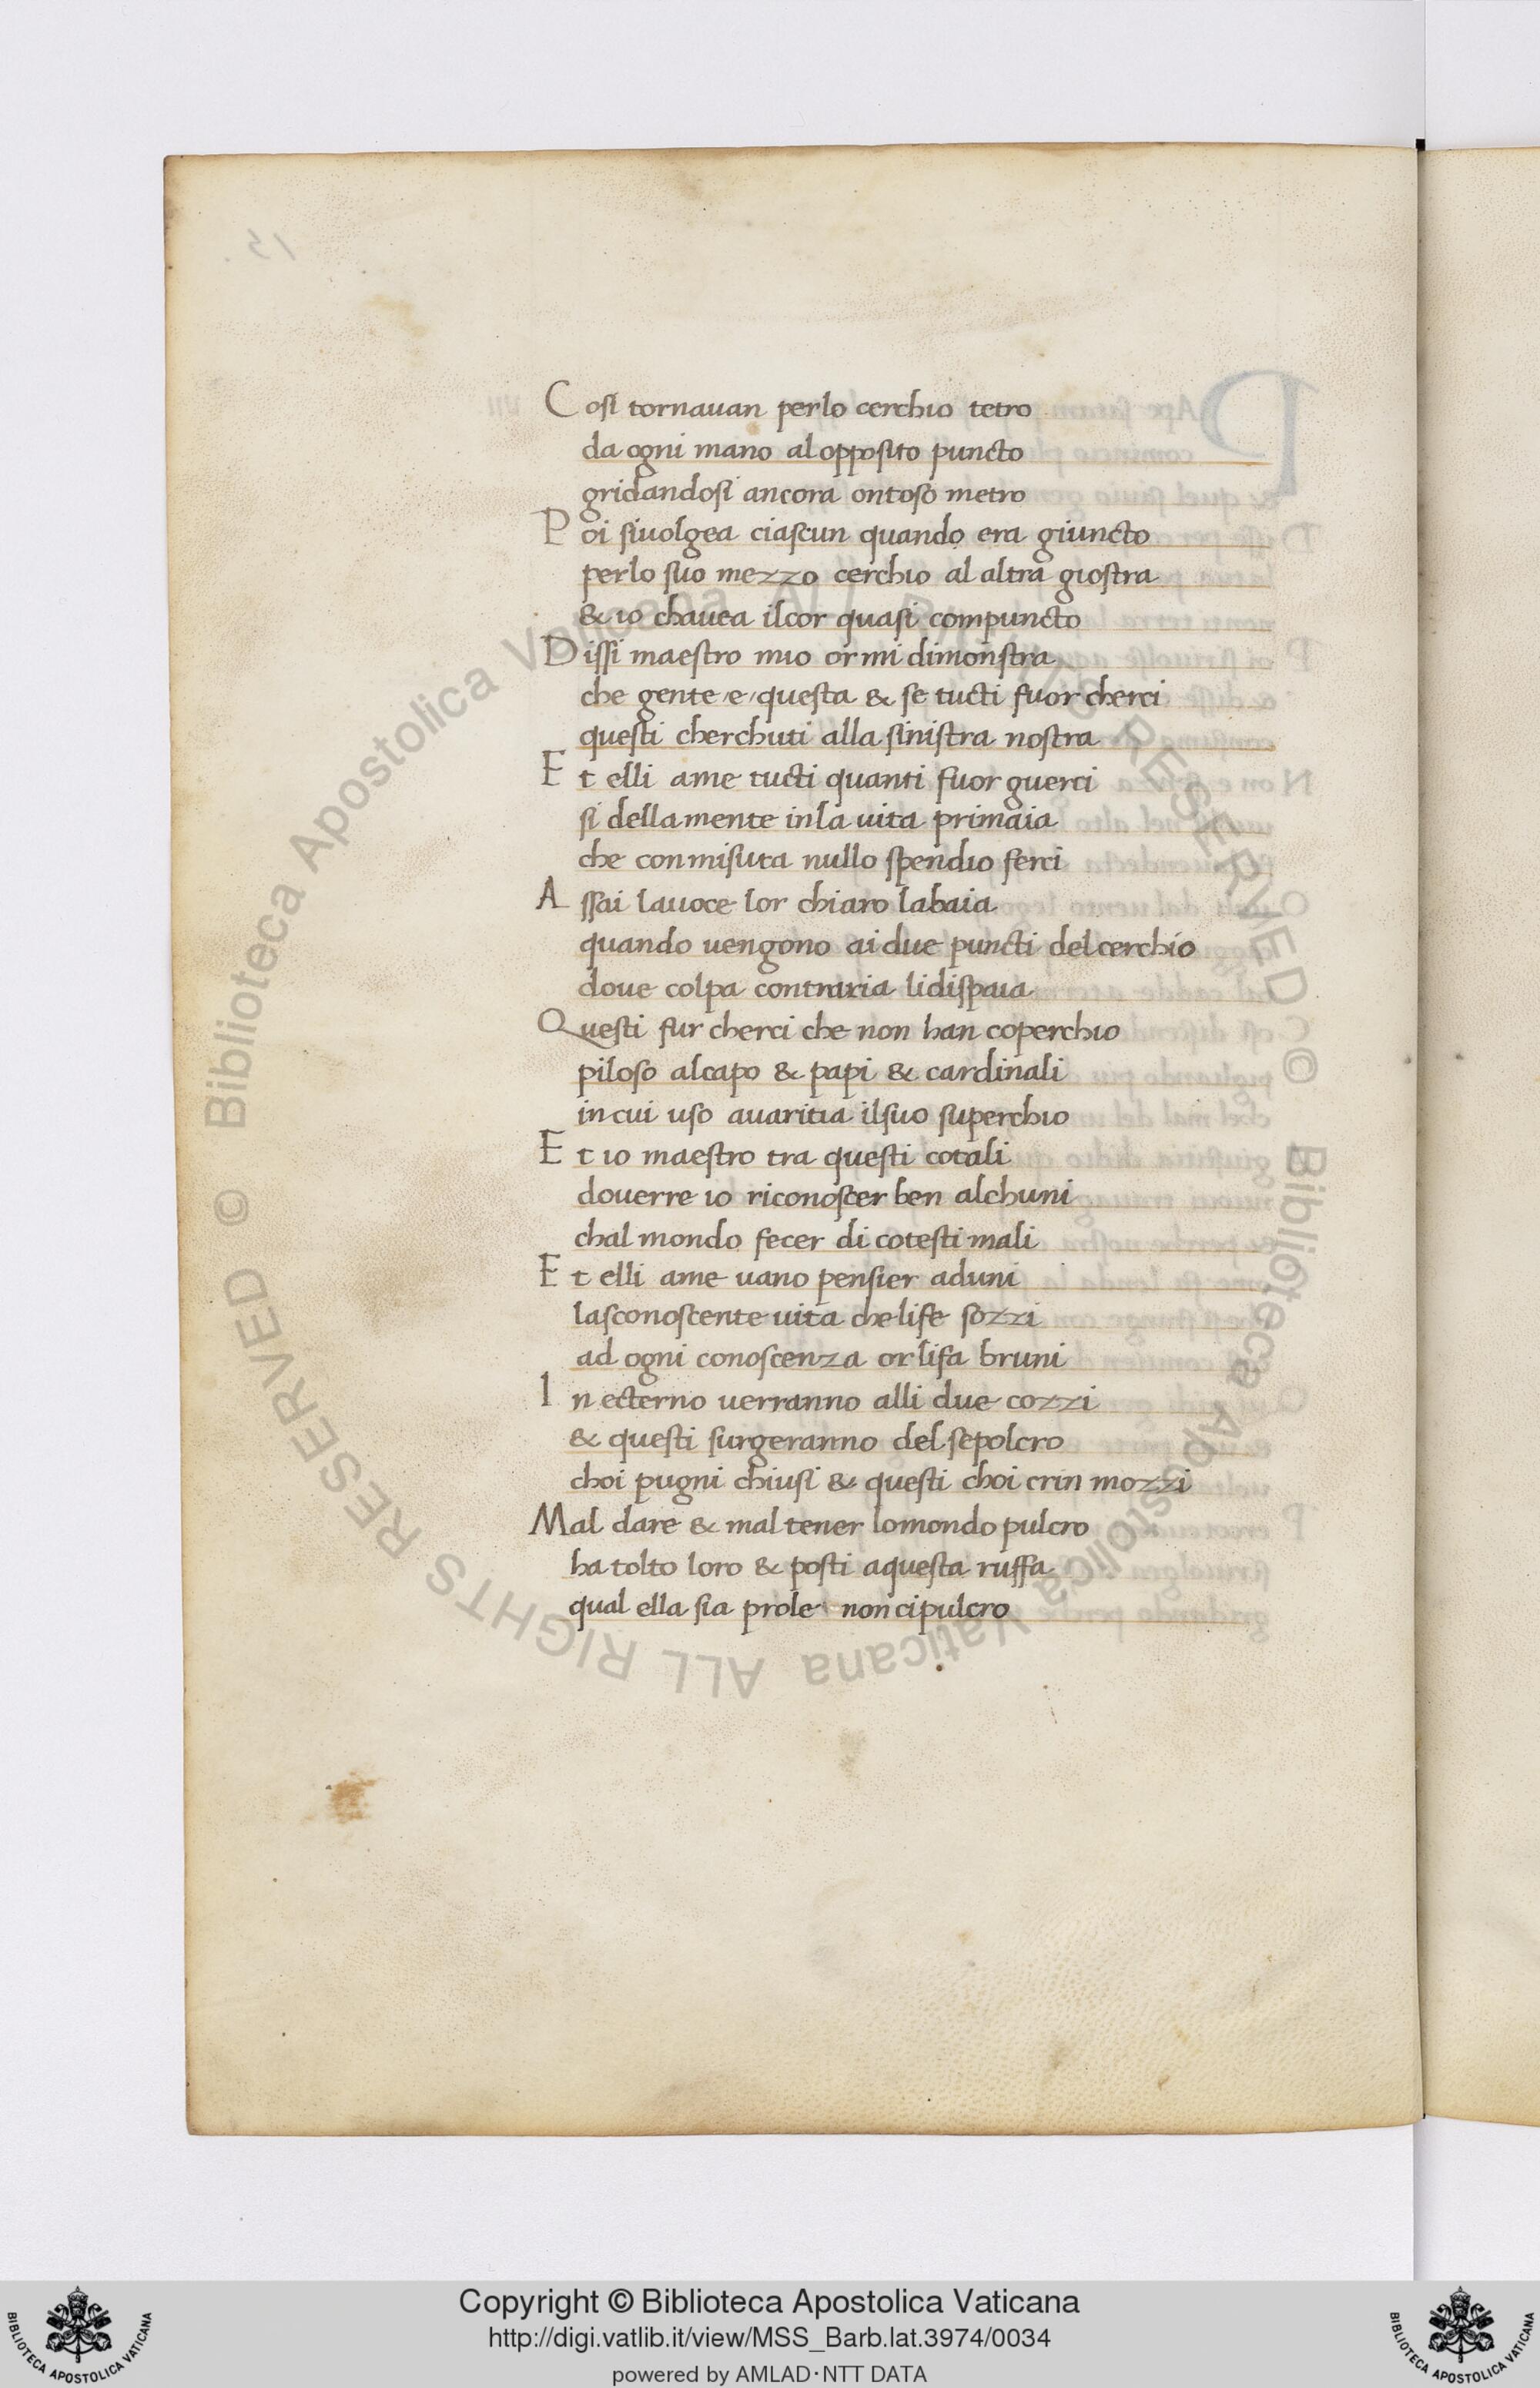 Cosi tornauan perlo cerchio tetro
da ogni mano al opposito puncto
gridandosi ancora ontoso metro
Poi siuolgea ciascun quando era giuncto
perlo suo mezzo cerchio al altra giostra
& io chauea ilcor quasi compuncto
Dissi maestro mio or mi dimonstra
che gente /e/ questa & se tucti fuor cherci
questi cherchuti alla sinistra nostra
Et elli ame tucti quanti fuor guerci
si dellamente inla uita primaia
che conmisura nullo spendio ferci
Assai lauoce lor chiaro labaia
quando uengono ai due puncti delcerchio
doue colpa contraria lidispaia
Questi fur cherci che non han coperchio
piloso alcapo & papi & cardinali
incui uso auaritia ilsuo superchio
Et io maestro tra questi cotali
douerre io riconoscer ben alchuni
chal mondo fecer di cotesti mali
Et elli ame uano pensier aduni
lasconoscente uita chelife sozzi
ad ogni conoscenza or lifa bruni
In ecterno uerranno alli due cozzi
& questi surgeranno del sepolcro
choi pugni chiusi & questi choi crin mozzi
Mal dare & mal tener lomondo pulcro
ha tolto loro & posti aquesta ruffa
qual ella sia prole non cipulcro
Copyright © Biblioteca Apostolica Vaticana
http://digi.vatlib.it/view/MSS_Barb.lat.3974/0034
powered by AMLAD·NTT DATA
BIBLIOTECA APOSTOLICA VATICANA
BIBLIOTECA APOSTOLICA VATICANA
Biblioteca Apostolica Vaticana ALL RIGHTS RESERVED ©
Biblioteca Apostolica Vaticana ALL RIGHTS RESERVED ©